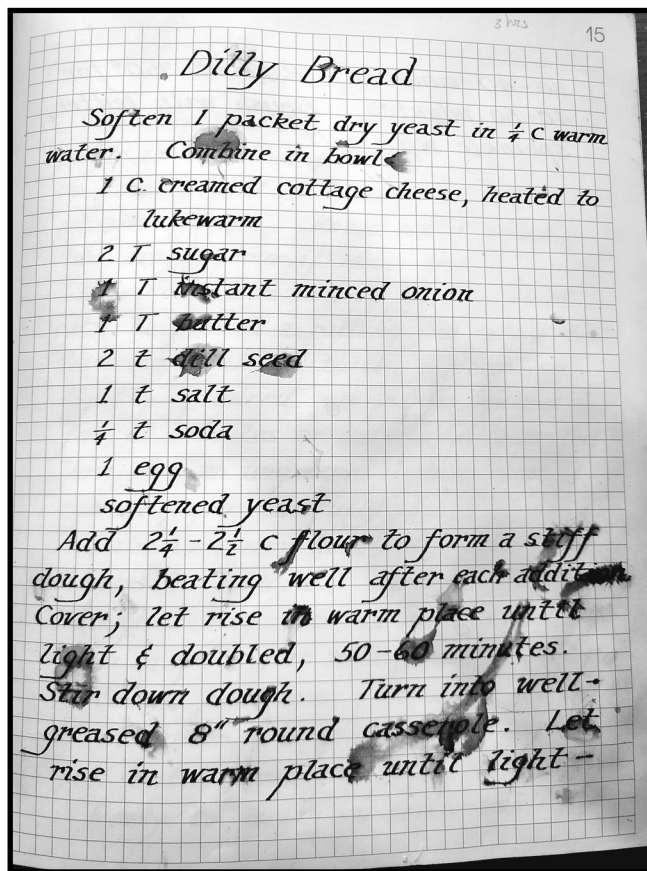 3 hrs
15
Dilly Bread
Soften 1 packet dry yeast in ¼ c warm
water. Combine in bowl
1 C. creamed cottage cheese, heated to
lukewarm
2 T sugar
1 T instant minced onion
1 T butter
2 t dill seed
1 t salt
¼ t soda
1 egg
softened yeast
Add 2¼ - 2½ c flour to form a stiff
dough, beating well after each addition
Cover; let rise in warm place until
light & doubled, 50-60 minutes.
Stir down dough. Turn into well-
greased 8" round casserole. Let
rise in warm place until light -